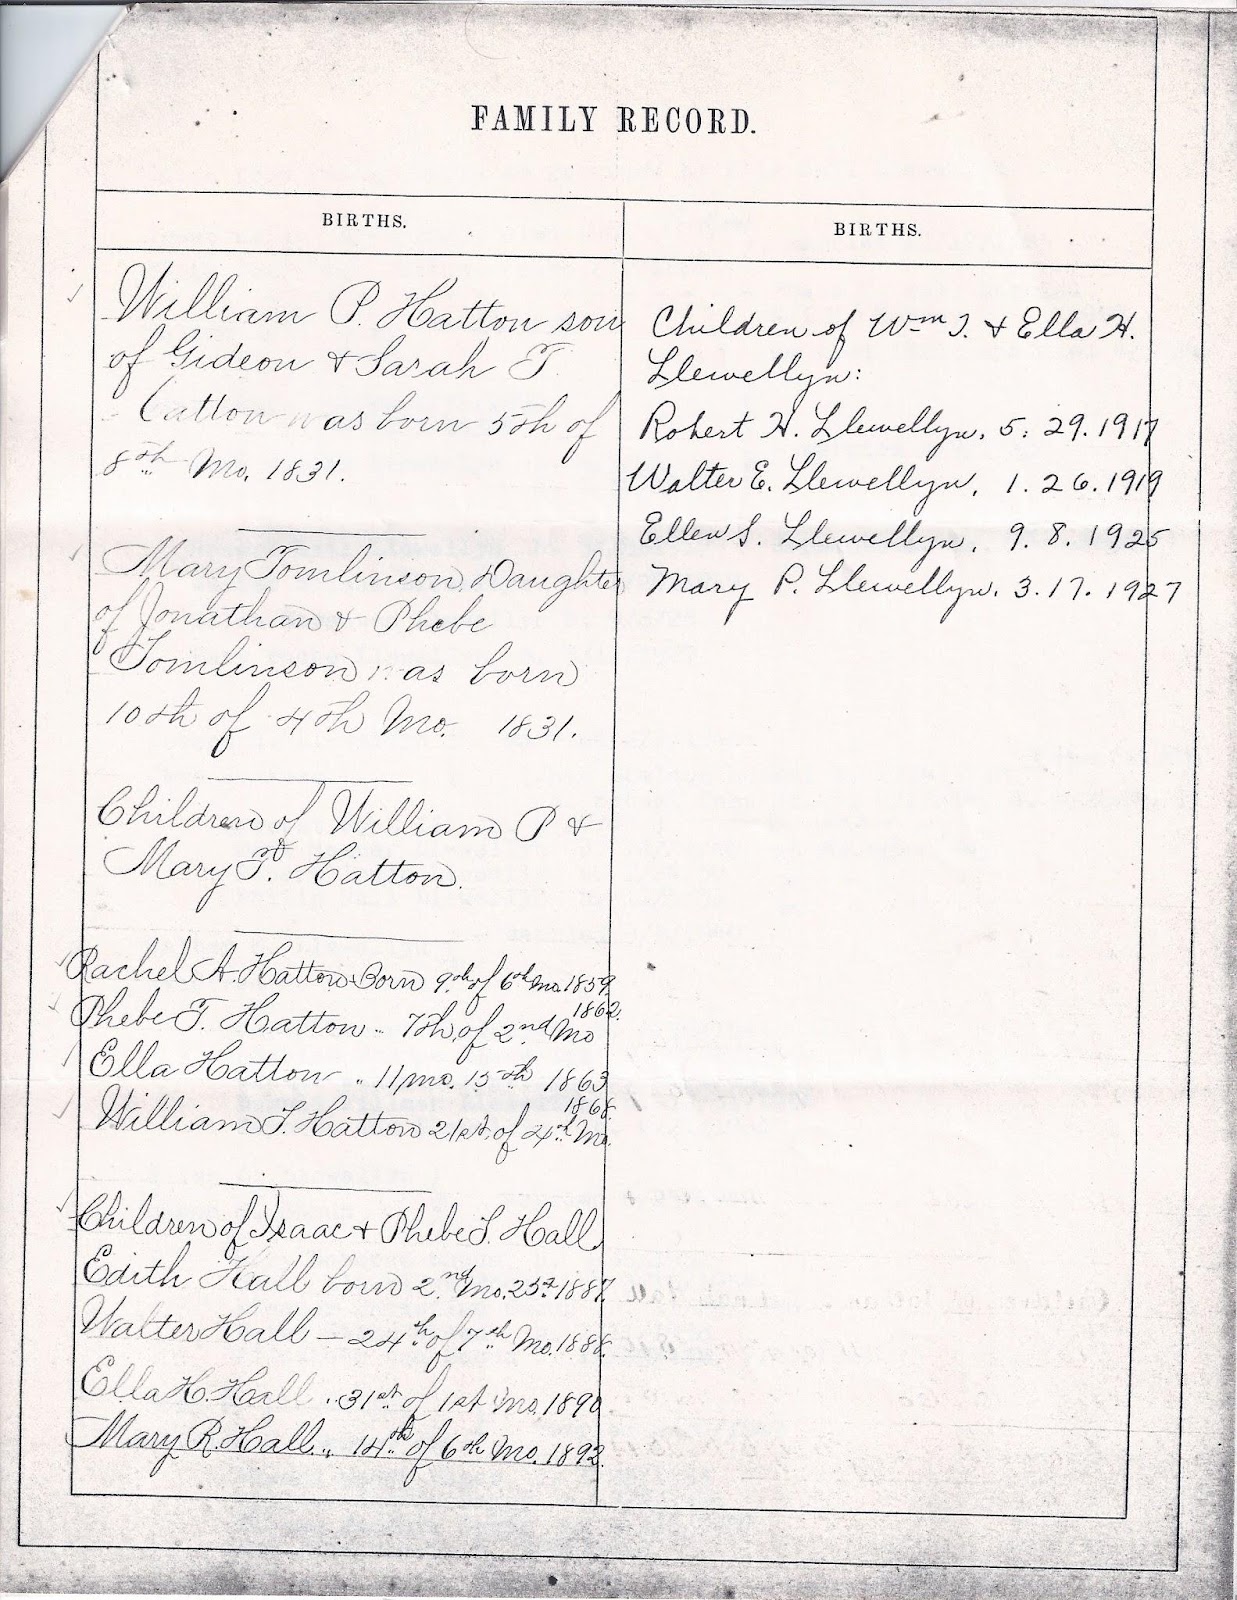 FAMILY RECORD.
BIRTHS.
William P. Hatton son
of Gideon & Sarah T.
Hatton was born 5th of
8th Mo. 1831.
Mary Tomlinson, Daughter
of Jonathan & Phebe
Tomlinson was born
10th of 4th Mo. 1831.
Children of William P &
Mary T. Hatton.
Rachel A. Hatton Born 9th of 6th mo. 1859.
Phebe T. Hatton .. 7th of 2nd Mo 1862.
Ella Hatton .. 11 mo. 15th 1863
William T. Hatton 21st of 4th Mo. 1868.
Children of Isaac & Phebe T. Hall
Edith Hall born 2nd Mo. 1887.
Walter Hall — 24th of 7th Mo. 1888.
Ella H. Hall .. 31st of 1st Mo. 1890
Mary R. Hall .. 14th of 6th Mo. 1892.
BIRTHS.
Children of Wm T. & Ella H.
Llewellyn:
Robert H. Llewellyn. 5. 29. 1917
Walter E. Llewellyn. 1. 26. 1919
Ellen S. Llewellyn. 9. 8. 1925
Mary P. Llewellyn. 3. 17. 1927